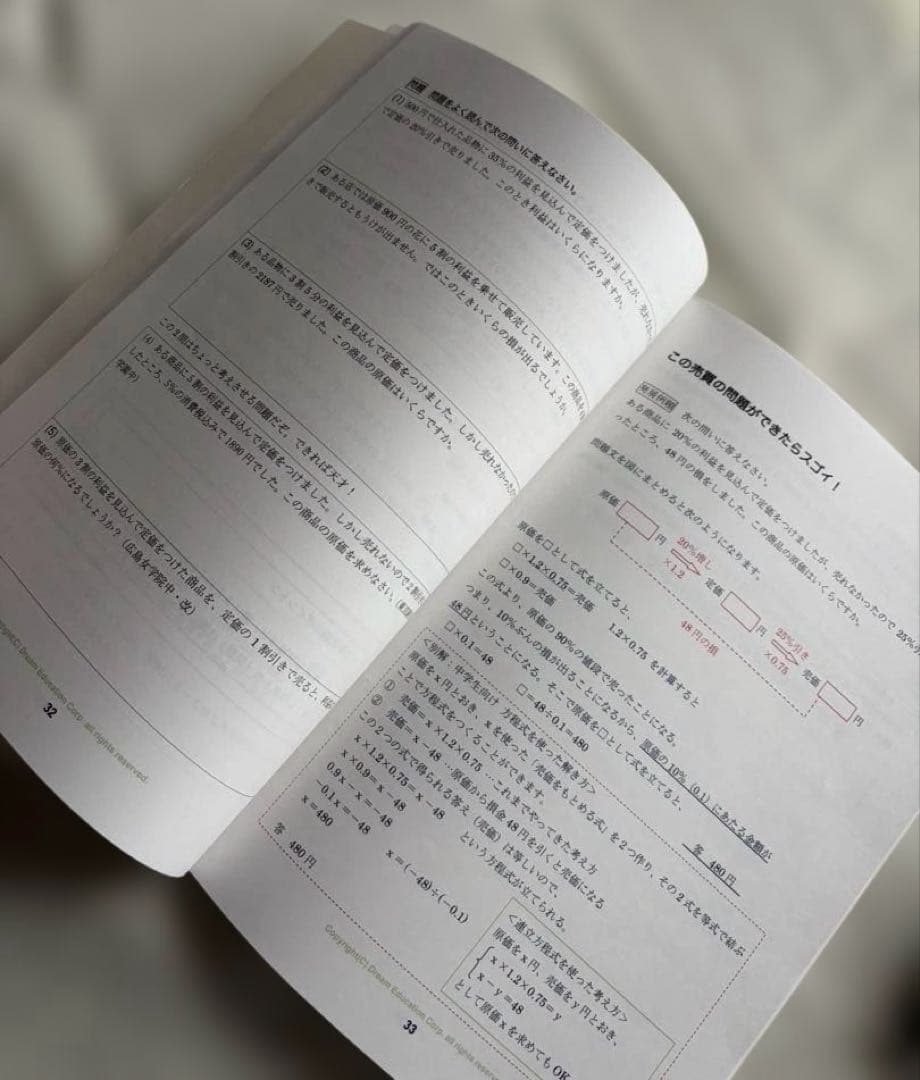 問題 問題をよく読んで次の問いに答えなさい。
(1) 500円で仕入れた品物に35%の利益を見込んで定価をつけましたが、売れ
で定価の20%引きで売りました。このとき利益はいくらになりますか。
(2) ある店では原価900円の花に5割の利益を乗せて販売しています。この商品を
きで販売するともうけが出ません。ではこのときいくらの損が出るでしょうか。
(3) ある品物に3割5分の利益を見込んで定価をつけました。しかし売れなかった
割引きの2187円で売りました。この商品の原価はいくらですか。
この2問はちょっと考えさせる問題だぞ。できれば天才！
(4) ある商品に5割の利益を見込んで定価をつけました。しかし売れないので2割引
したところ、5%の消費税込みで1890円でした。この商品の原価を求めなさい。
学園中)
(5) 原価の3割の利益を見込んで定価をつけた商品を、定価の1割引きで売ると、
原価の何%になるでしょうか？（広島女学院中・改）
Copyright(C) Dream Education Corp. all rights reserved.
32
この売買の問題ができたらスゴイ！
発展例題 次の問いに答えなさい。
ある商品に20%の利益を見込んで定価をつけましたが、売れなかったので25%
ったところ、48円の損をしました。この商品の原価はいくらですか。
問題文を図にまとめると次のようになります。
原価 円 20%増し ×1.2 定価 円 25%引き ×0.75 売価 円
48円の損
原価を□として式を立てると、
□×1.2×0.75=売価 1.2×0.75を計算すると
□×0.9=売価
この式より、原価の90%の値段で売ったことになる。
つまり、10%ぶんの損が出ることになるから、原価の10%(0.1)にあたる金額が
48円ということになる。そこで原価を□として式を立てると、
□×0.1=48 □=48÷0.1=480
答 480円
<別解：中学生向け 方程式を使った解き方>
原価をx円とおき、xを使った「売価をもとめる式」を2つ作り、その2式を等式で結ぶ
ことで方程式をつくることができます。
① 売価=x×1.2×0.75…これまでやってきた考え方
② 売価=x−48…原価から損金48円を引くと売価になる
この2つの式で得られる答え（売価）は等しいので、
x×1.2×0.75=x−48 という方程式が立てられる。
x×0.9=x−48
0.9x−x=−48
−0.1x=−48 x=(−48)÷(−0.1)
x=480
答 480円
<連立方程式を使った考え方>
原価をx円、売価をy円とおき、
x×1.2×0.75=y
x−y=48
として原価xを求めてもOK
Copyright(C) Dream Education Corp. all rights reserved
33